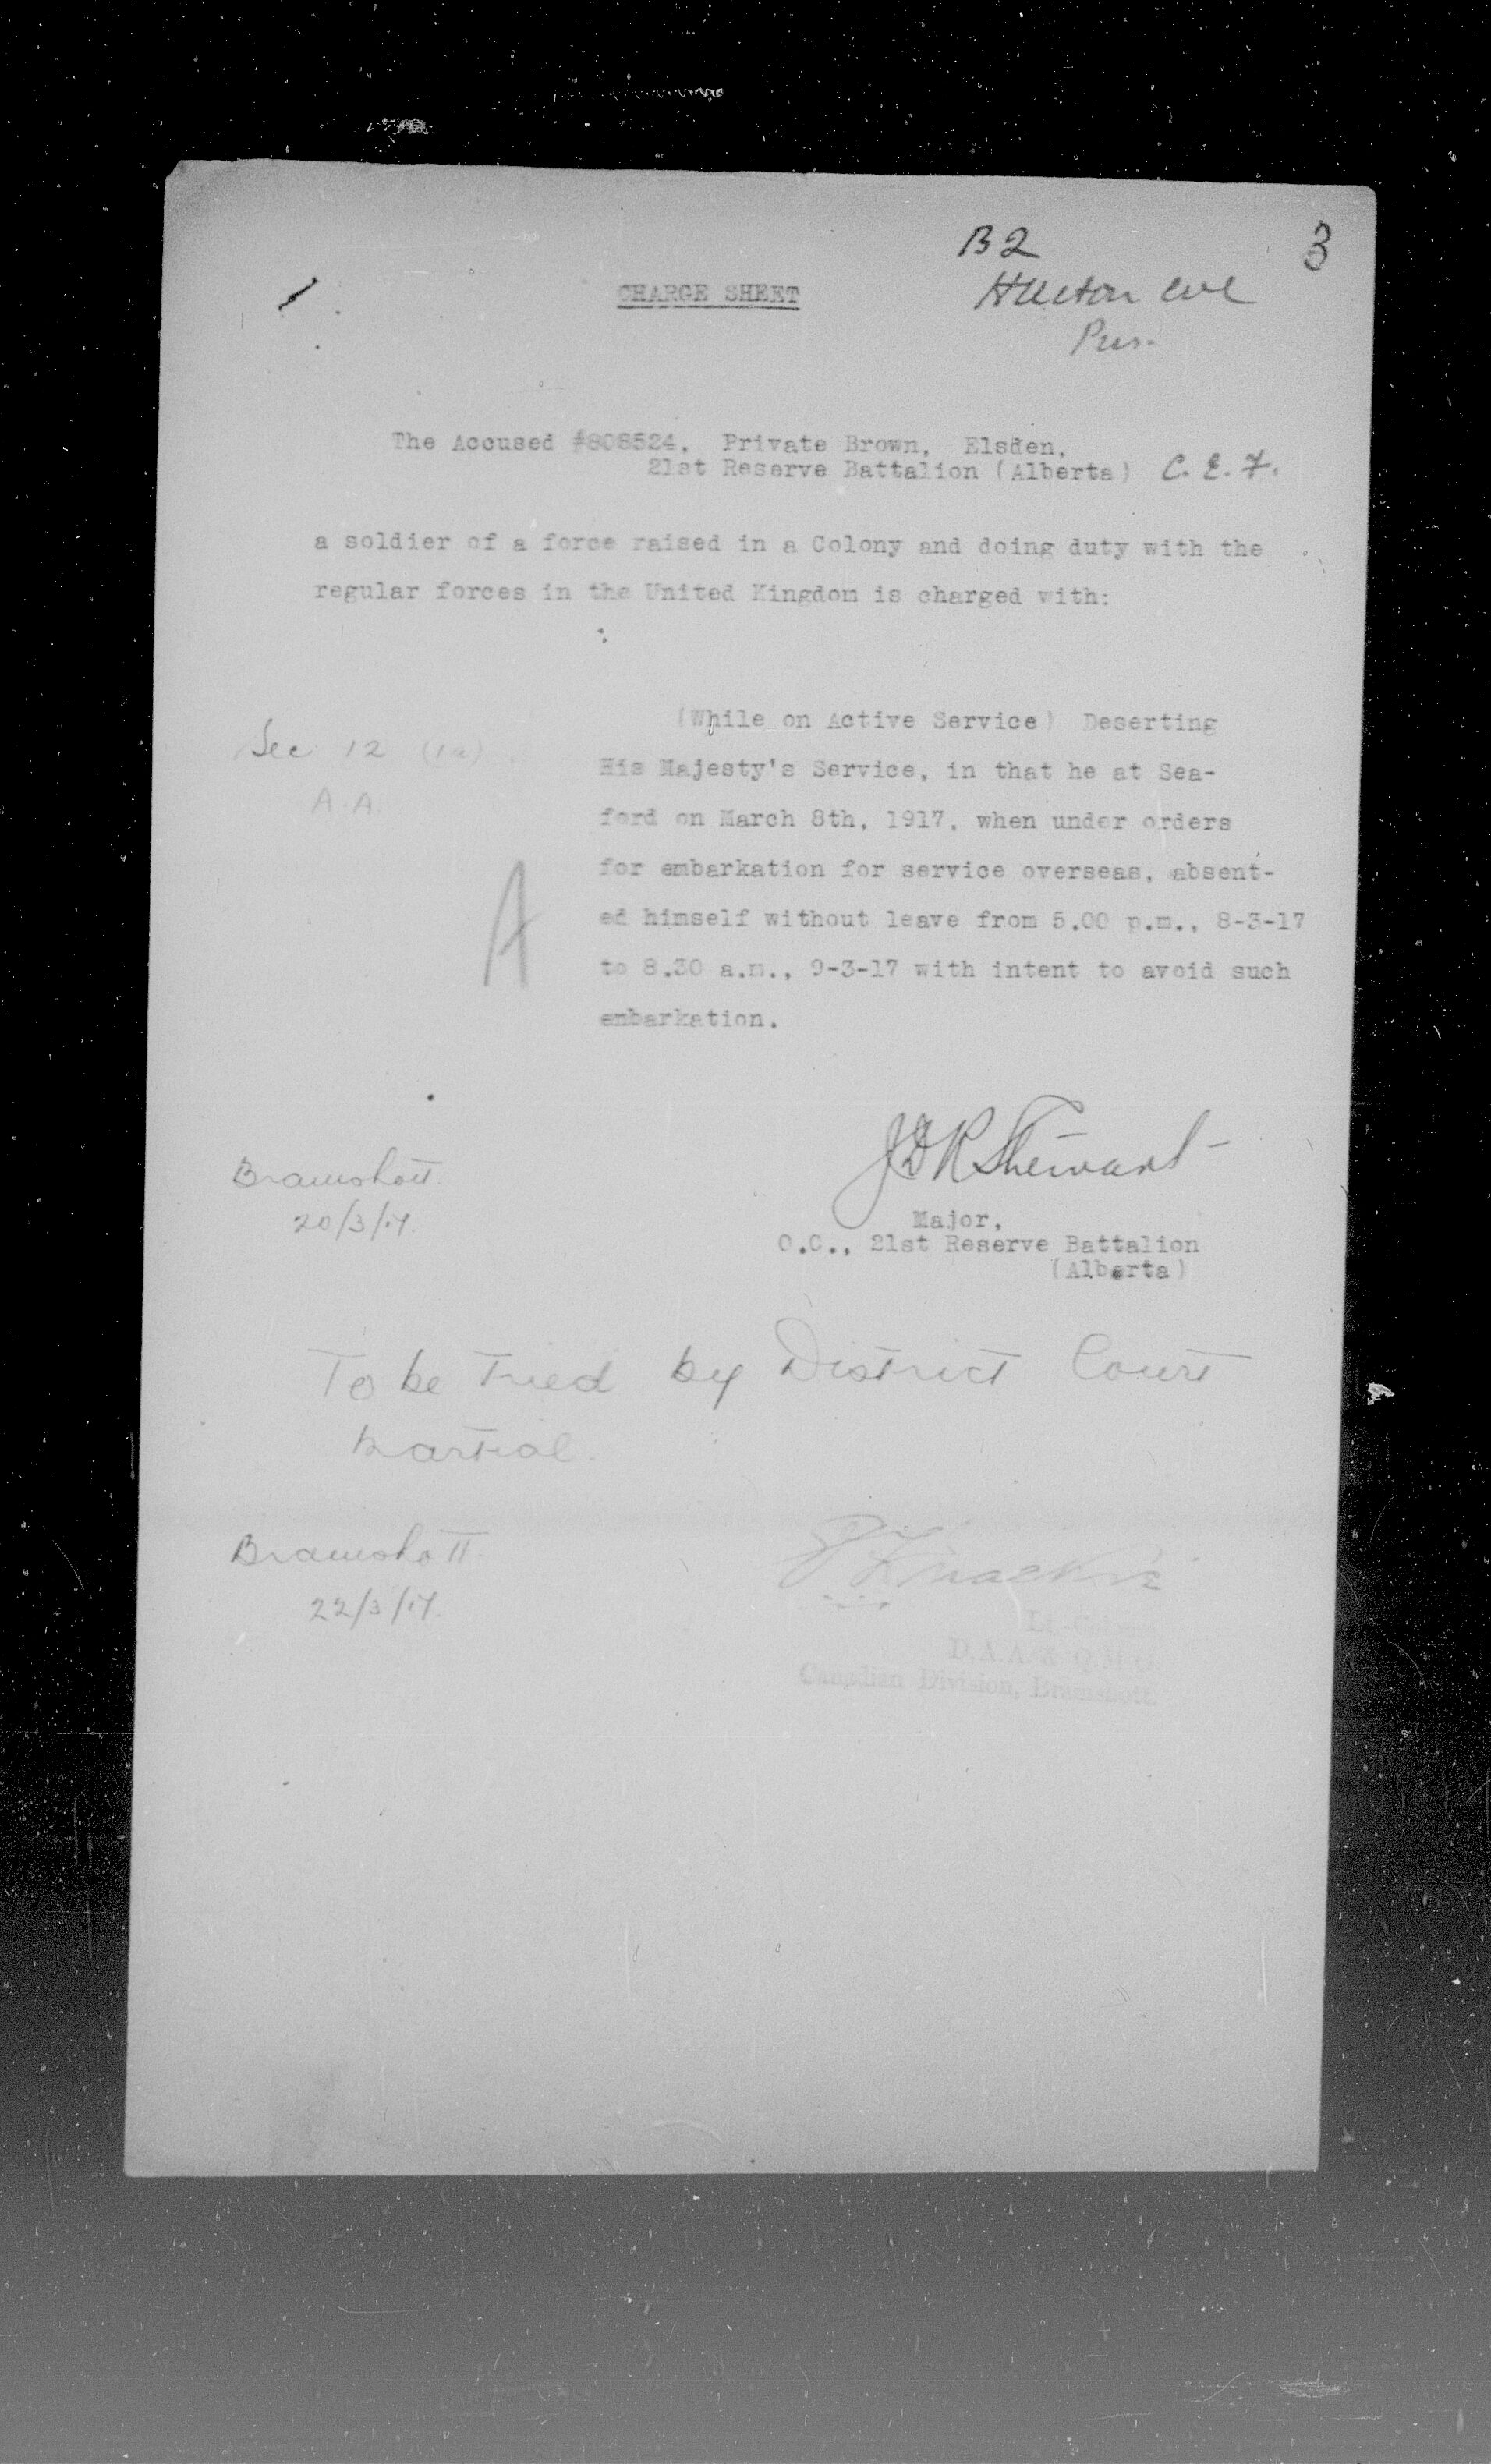 B2
3
CHARGE SHEET
Pres.
The Accused #808524, Private Brown, Elsden,
21st Reserve Battalion (Alberta) C. E. F.
a soldier of a force raised in a Colony and doing duty with the
regular forces in the United Kingdom is charged with:
(While on Active Service) Deserting
Sec 12 (1a)
His Majesty's Service, in that he at Sea-
A.A.
ford on March 8th, 1917, when under orders
for embarkation for service overseas, absent-
A
ed himself without leave from 5.00 p.m., 8-3-17
to 8.30 a.m., 9-3-17 with intent to avoid such
embarkation.
Bramshott.
20/3/17.
Major,
O.C., 21st Reserve Battalion
(Alberta)
To be tried by District Court
Martial.
Bramshott.
22/3/17.
Lt.-Col.
D.A.A. & Q.M.G.
Canadian Division, Bramshott.